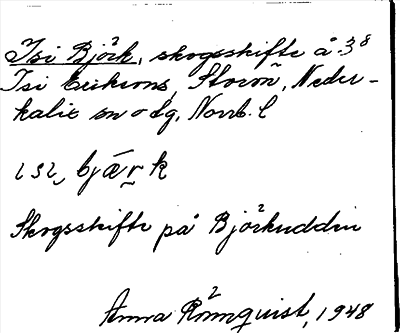 Isi Björk, skogsskifte å 3⁸
Isi Erikssons, Storön, Neder-
kalix sn o dg, Norrb. l
ısı, bjæ̀r̥k
Skogsskifte på Björkudden
Anna Rönnquist, 1948